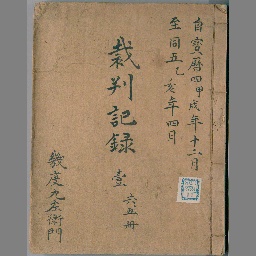 自寳暦四甲戌年十二月
至同五乙亥年四月
裁判記録 壹
共五冊
幾度九左衛門